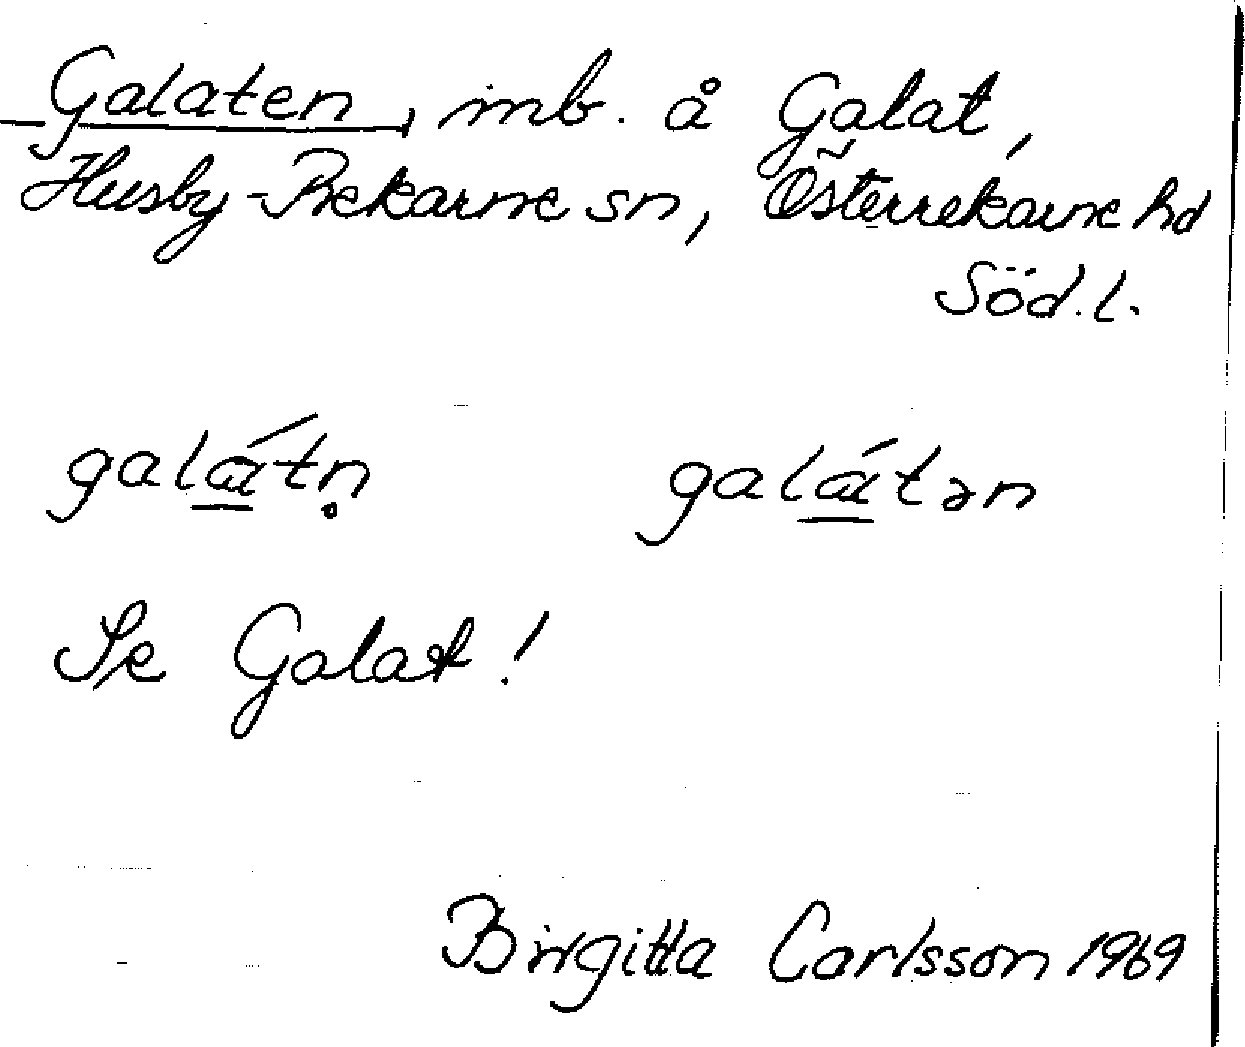 Galaten, inb. å Galat,
Husby-Rekarne sn, Österrekarne hd
Söd. l.
galátn̥ galátən
Se Galat!
Birgitta Carlsson 1969